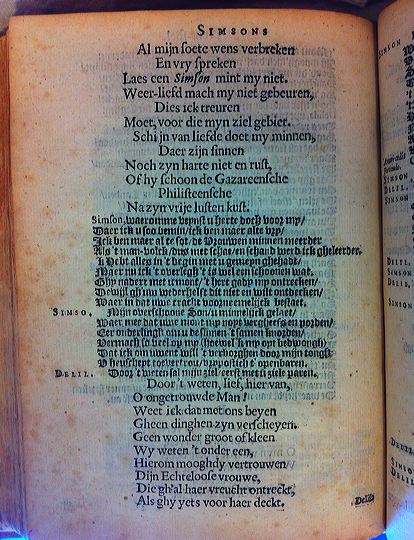 SIMSONS
Al mijn soete wens verbreken
En vry spreken
Laes een Simson mint my niet.
Weer-liefd mach my niet gebeuren,
Dies ick treuren
Moet, voor die myn ziel gebier.
Schijn van liefde doet my minnen,
Daer zijn sinnen
Noch zyn harte niet en rust,
Of hy schoon de Gazareensche
Philisteensche
Na zyn vrije lusten kust.
Simson, waeromme veynst u herte doch voor my/
Waer ick u soo bemin/ ick ben maer alte vry/
Ick ben maer al te sot/ de Vrouwen minnen meerder
Als 't man-volck/ ons met schae/ en schand werd ick gheleerder.
'k Heb alles in 't begin met u gemeyn ghehadt/
Maer nu ick 't oversegh 't is wel een schoonen wat,
Ghy nadert met u mont/ 't hert gady my ontrecken/
Dewijl ghy uw wederhelft dit niet en wilt ontdecken/
Waer in dat uwe cracht voornemelijck bestaet.
SIMSO. Mijn overschoone Son/ u minnelijck gelaet/
Waer met dat uwe mont my nopt
Vermach so veel op my (hoewel ick my opt bedwongh)
Dat ick om uwent will' 't verborghen door mijn tongh
openbaren.
DELIL. Door 't weten sal mijn ziel eerst met u ziele paren.
Door 't weten, lief, hier van,
O ongetrouwde Man!
Weet ick dat met ons beyen
Gheen dinghen zyn verscheyen.
Geen wonder groot of kleen
Wy weten 't onder een,
Hierom mooghdy vertrouwen
Dijn Echteloose vrouwe,
Die gh'al haer vreucht ontreckt,
Als ghy yets voor haer deckt.